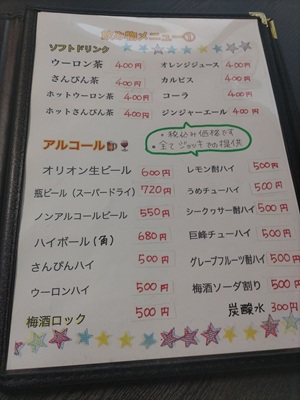 飲み物メニュー
ソフトドリンク
ウーロン茶 400円
さんぴん茶 400円
ホットウーロン茶 400円
ホットさんぴん茶 400円
オレンジジュース 400円
カルピス 400円
コーラ 400円
ジンジャーエール 400円
・税込み価格です
・全てジョッキでの提供
アルコール
オリオン生ビール 600円
瓶ビール(スーパードライ) 720円
ノンアルコールビール 550円
ハイボール(角) 680円
さんぴんハイ 500円
ウーロンハイ 500円
梅酒ロック 500円
レモン酎ハイ 500円
うめチューハイ 500円
シークヮサー酎ハイ 500円
巨峰チューハイ 500円
グレープフルーツ酎ハイ 500円
梅酒ソーダ割り 500円
炭酸水 300円